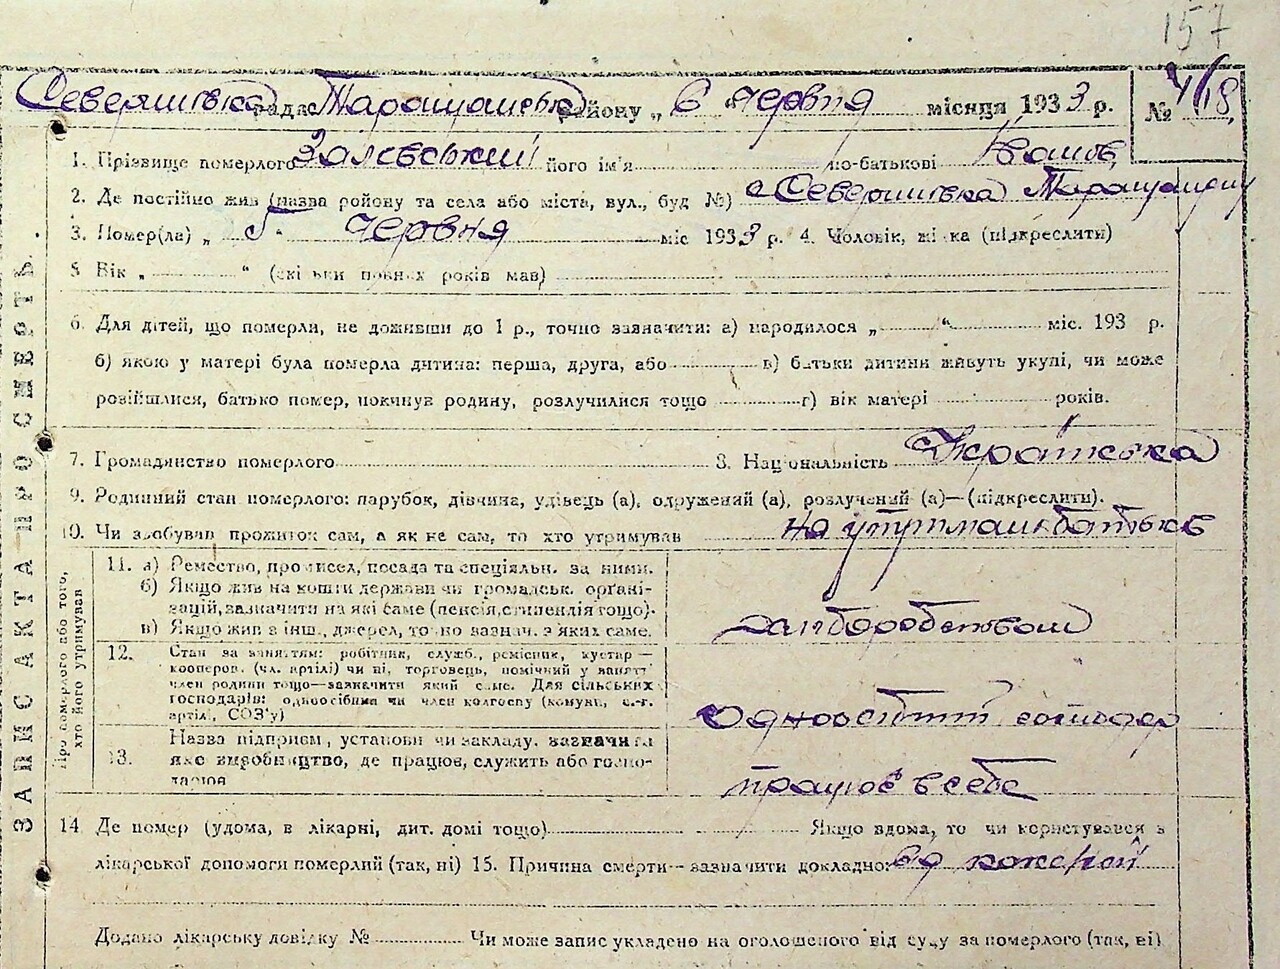 157
Северинівка рада Таращанська району „6" червня місяця 1933 р. № 4/18
1. Прізвище померлого Залєвський його ім'я по-батькові Іванів
2. Де постійно жив (назва району та села або міста, вул., буд №) с Северинівка
3. Помер(ла) „5" червня міс 1933 р. 4. Чоловік, жінка (підкреслити)
5 Вік „ " (скільки повних років мав)
6. Для дітей, що померли, не доживши до 1 р., точно зазначити: а) народилося „ " міс. 193 р.
б) якою у матері була померла дитина: перша, друга, або в) батьки дитини живуть укупі, чи може
розійшлися, батько помер, покинув родину, розлучилися тощо г) вік матері років.
7. Громадянство померлого 8. Національність Українська
9. Родинний стан померлого: парубок, дівчина, удівець (а), одружений (а), розлучений (а)—(підкреслити).
10. Чи здобував прожиток сам, а як не сам, то хто утримував на утриман батьків
11. а) Ремество, промисел, посада та спеціяльн. за ними.
б) Якщо жив на кошти держави чи громадськ. орґані-
зацій, зазначити на які саме (пенсія, стипендія тощо).
в) Якщо жив з інш., джерел, точно зазнач. з яких саме.
12. Стан за заняттям: робітник, служб., ремісник, кустар—
кооперов. (чл. артілі) чи ні, торговець, помічний у занятт
член родини тощо—зазначити який саме. Для сільських
господарів: одноосібник чи член колгоспу (комуни, с.-г.
артіл, СОЗ'у)
одноосібний
13. Назва підприєм, установи чи закладу, зазначити
яке виробництво, де працює, служить або госпо-
працює в себе
14. Де помер (удома, в лікарні, дит. домі тощо) Якщо вдома, то чи користувався з
лікарської допомоги померлий (так, ні) 15. Причина смерти—зазначити докладно: від
Додано лікарську довідку № Чи може запис укладено на оголошеного від суду за померлого (так, ні)
ЗАПИС АКТА ПРО СМЕРТЬ.
Про померлого або того,
хто його утримував